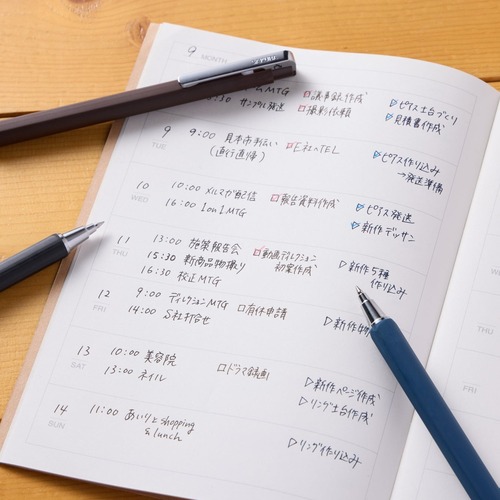 9 MONTH
MTG □議事録作成 ▷ピアス土台づくり
:30 サンプル発送 □撮影依頼 ▷見積書作成
9 TUE 9:00 見本市手伝い □E社へTEL ▷ピアス作り込み
(直行直帰) →発送準備
10 WED 10:00 メルマガ配信 □報告資料作成 ▷ピアス発送
16:00 1on1MTG ▷新作デッサン
11 THU 13:00 施策報告会 □動画ディレクション ▷新作5種
15:30 新商品物撮り 初案作成 作り込み
16:30 校正MTG
12 FRI 9:00 ディレクションMTG □有休申請 ▷新作物
14:00 S社打合せ
13 SAT 10:00 美容院 □ドラマ録画 ▷新作ページ作成
13:00 ネイル ▷リング土台作成
14 SUN 11:00 あいりとshopping ▷リング作り込み
& lunch
THU
FRI